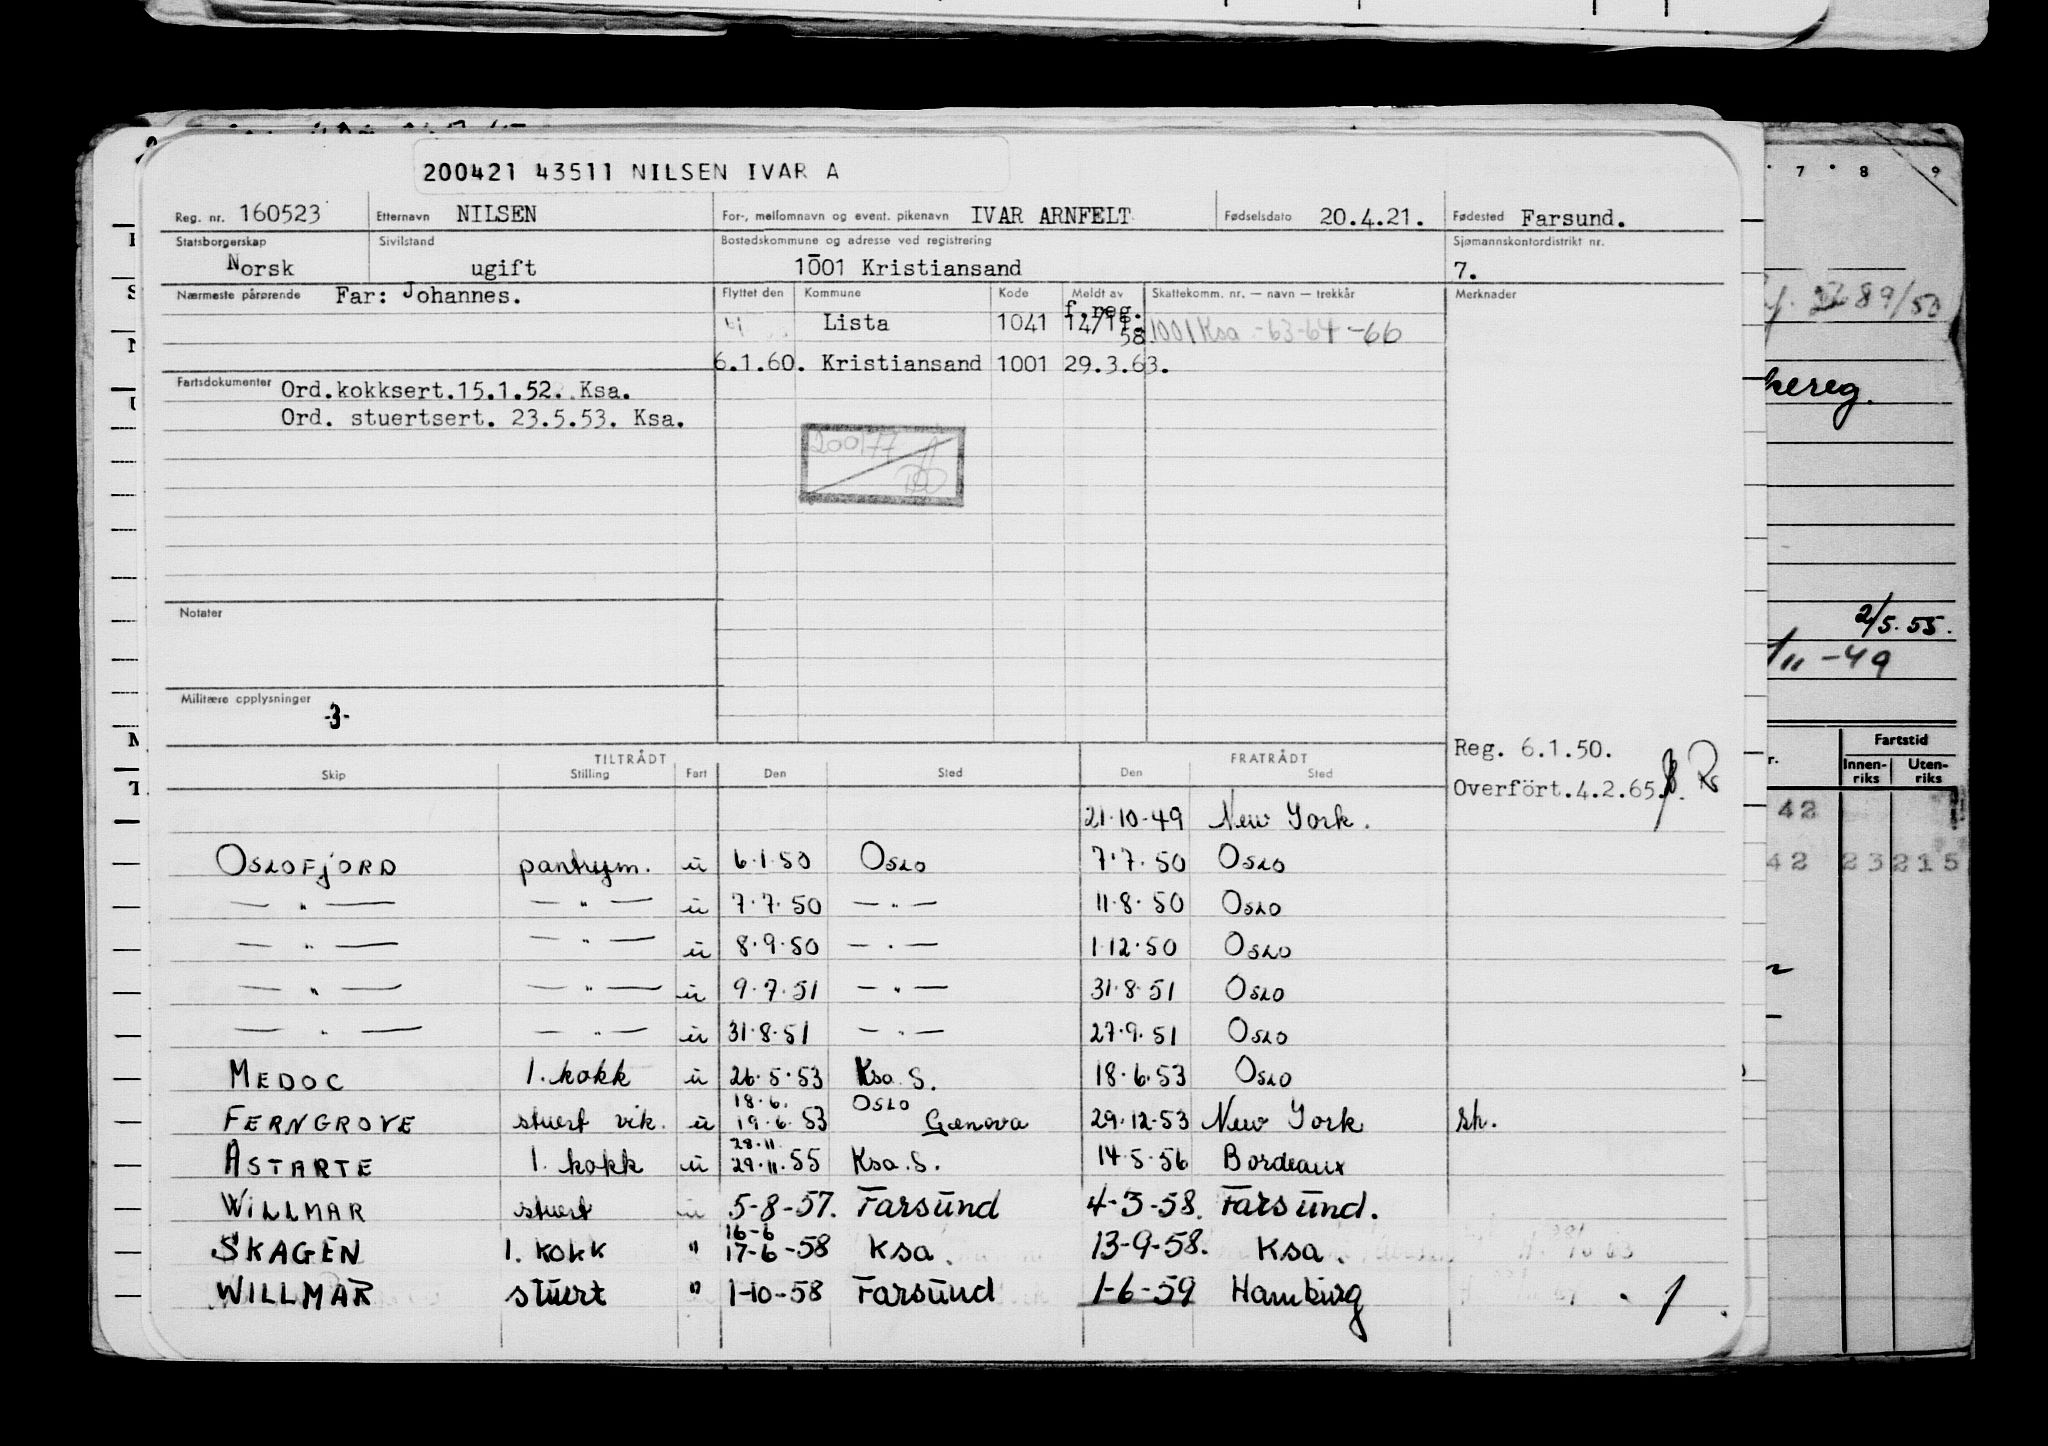 200421 43511 NILSEN IVAR A
Reg. nr. 160523 Etternavn NILSEN For-, mellomnavn og event. pikenavn IVAR ARNFELT Fødselsdato 20.4.21. Fødested Farsund.
Statsborgerskap Sivilstand Bostedskommune og adresse ved registrering Sjømannskontordistrikt nr.
Norsk ugift 1001 Kristiansand 7.
Nærmeste pårørende Far: Johannes. Flyttet den Kommune Kode Meldt av Skattekomm. nr. — navn — trekkår Merknader
f.reg.
Lista 1041 14/11. 1001 Ksa -63-64-66
58.
6.1.60. Kristiansand 1001 29.3.63.
Fartsdokumenter Ord.kokksert.15.1.52. Ksa.
Ord. stuertsert. 23.5.53. Ksa.
200177
Notater
Militære opplysninger
-3-
Reg. 6.1.50.
Overfört.4.2.65.
TILTRÅDT FRATRÅDT
Skip Stilling Fart Den Sted Den Sted
21.10.49 New York.
OSLOFJORD pantrym. u 6.1.50 OSLO 7.7.50 OSLO
— " — — " — u 7.7.50 — " — 11.8.50 OSLO
— " — — " — u 8.9.50 — " — 1.12.50 OSLO
— " — — " — u 9.7.51 — " — 31.8.51 OSLO
— " — — " — u 31.8.51 — " — 27.9.51 OSLO
MEDOC 1. kokk u 26.5.53 Ksa. S. 18.6.53 OSLO
18.6. OSLO
FERNGROVE stuert vik. u 19.6.53 Genova 29.12.53 New York sk.
28.11.
ASTARTE 1. kokk u 29.11.55 Ksa. S. 14.5.56 Bordeaux
WILLMAR stuert u 5-8-57. Farsund 4-3-58. Farsund.
16-6
SKAGEN 1. kokk " 17-6-58 Ksa. 13-9-58. Ksa.
WILLMAR stuert " 1-10-58 Farsund 1-6-59 Hamburg
7 8 9
89/50
2/5.55.
11-49
Fartstid
Innen-riks Uten-riks
42
42 23 215